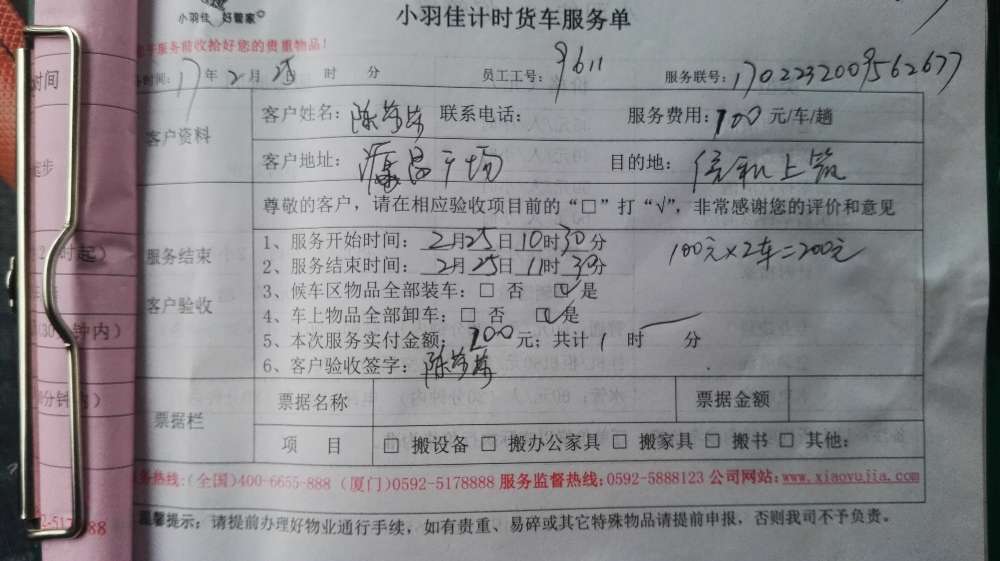 小羽佳 好管家
小羽佳计时货车服务单
服务前收拾好您的贵重物品！
时间：17年2月25 时 分 员工工号：9611 服务联号：1702232009562677
时间
客户资料
客户姓名： 陈 联系电话： 服务费用：100 元/车/趟
客户地址： 康 广场 目的地： 信和上筑
尊敬的客户，请在相应验收项目前的“□”打“√”，非常感谢您的评价和意见
服务结束
客户验收
1、服务开始时间：2月25日10时30分 100元×2车=200元
2、服务结束时间：2月25日11时30分
3、候车区物品全部装车：□ 否 ☑ 是
4、车上物品全部卸车：□ 否 ☑ 是
5、本次服务实付金额：200元；共计1 时 分
6、客户验收签字：陈
时起）
钟内）
票据栏
票据名称 票据金额
项 目 □ 搬设备 □ 搬办公家具 □ 搬家具 □ 搬书 □ 其他：
服务热线：（全国）400-6655-888（厦门）0592-5178888 服务监督热线：0592-5888123 公司网站：www.xiaoyujia.com
温馨提示：请提前办理好物业通行手续，如有贵重、易碎或其它特殊物品请提前申报，否则我司不予负责。